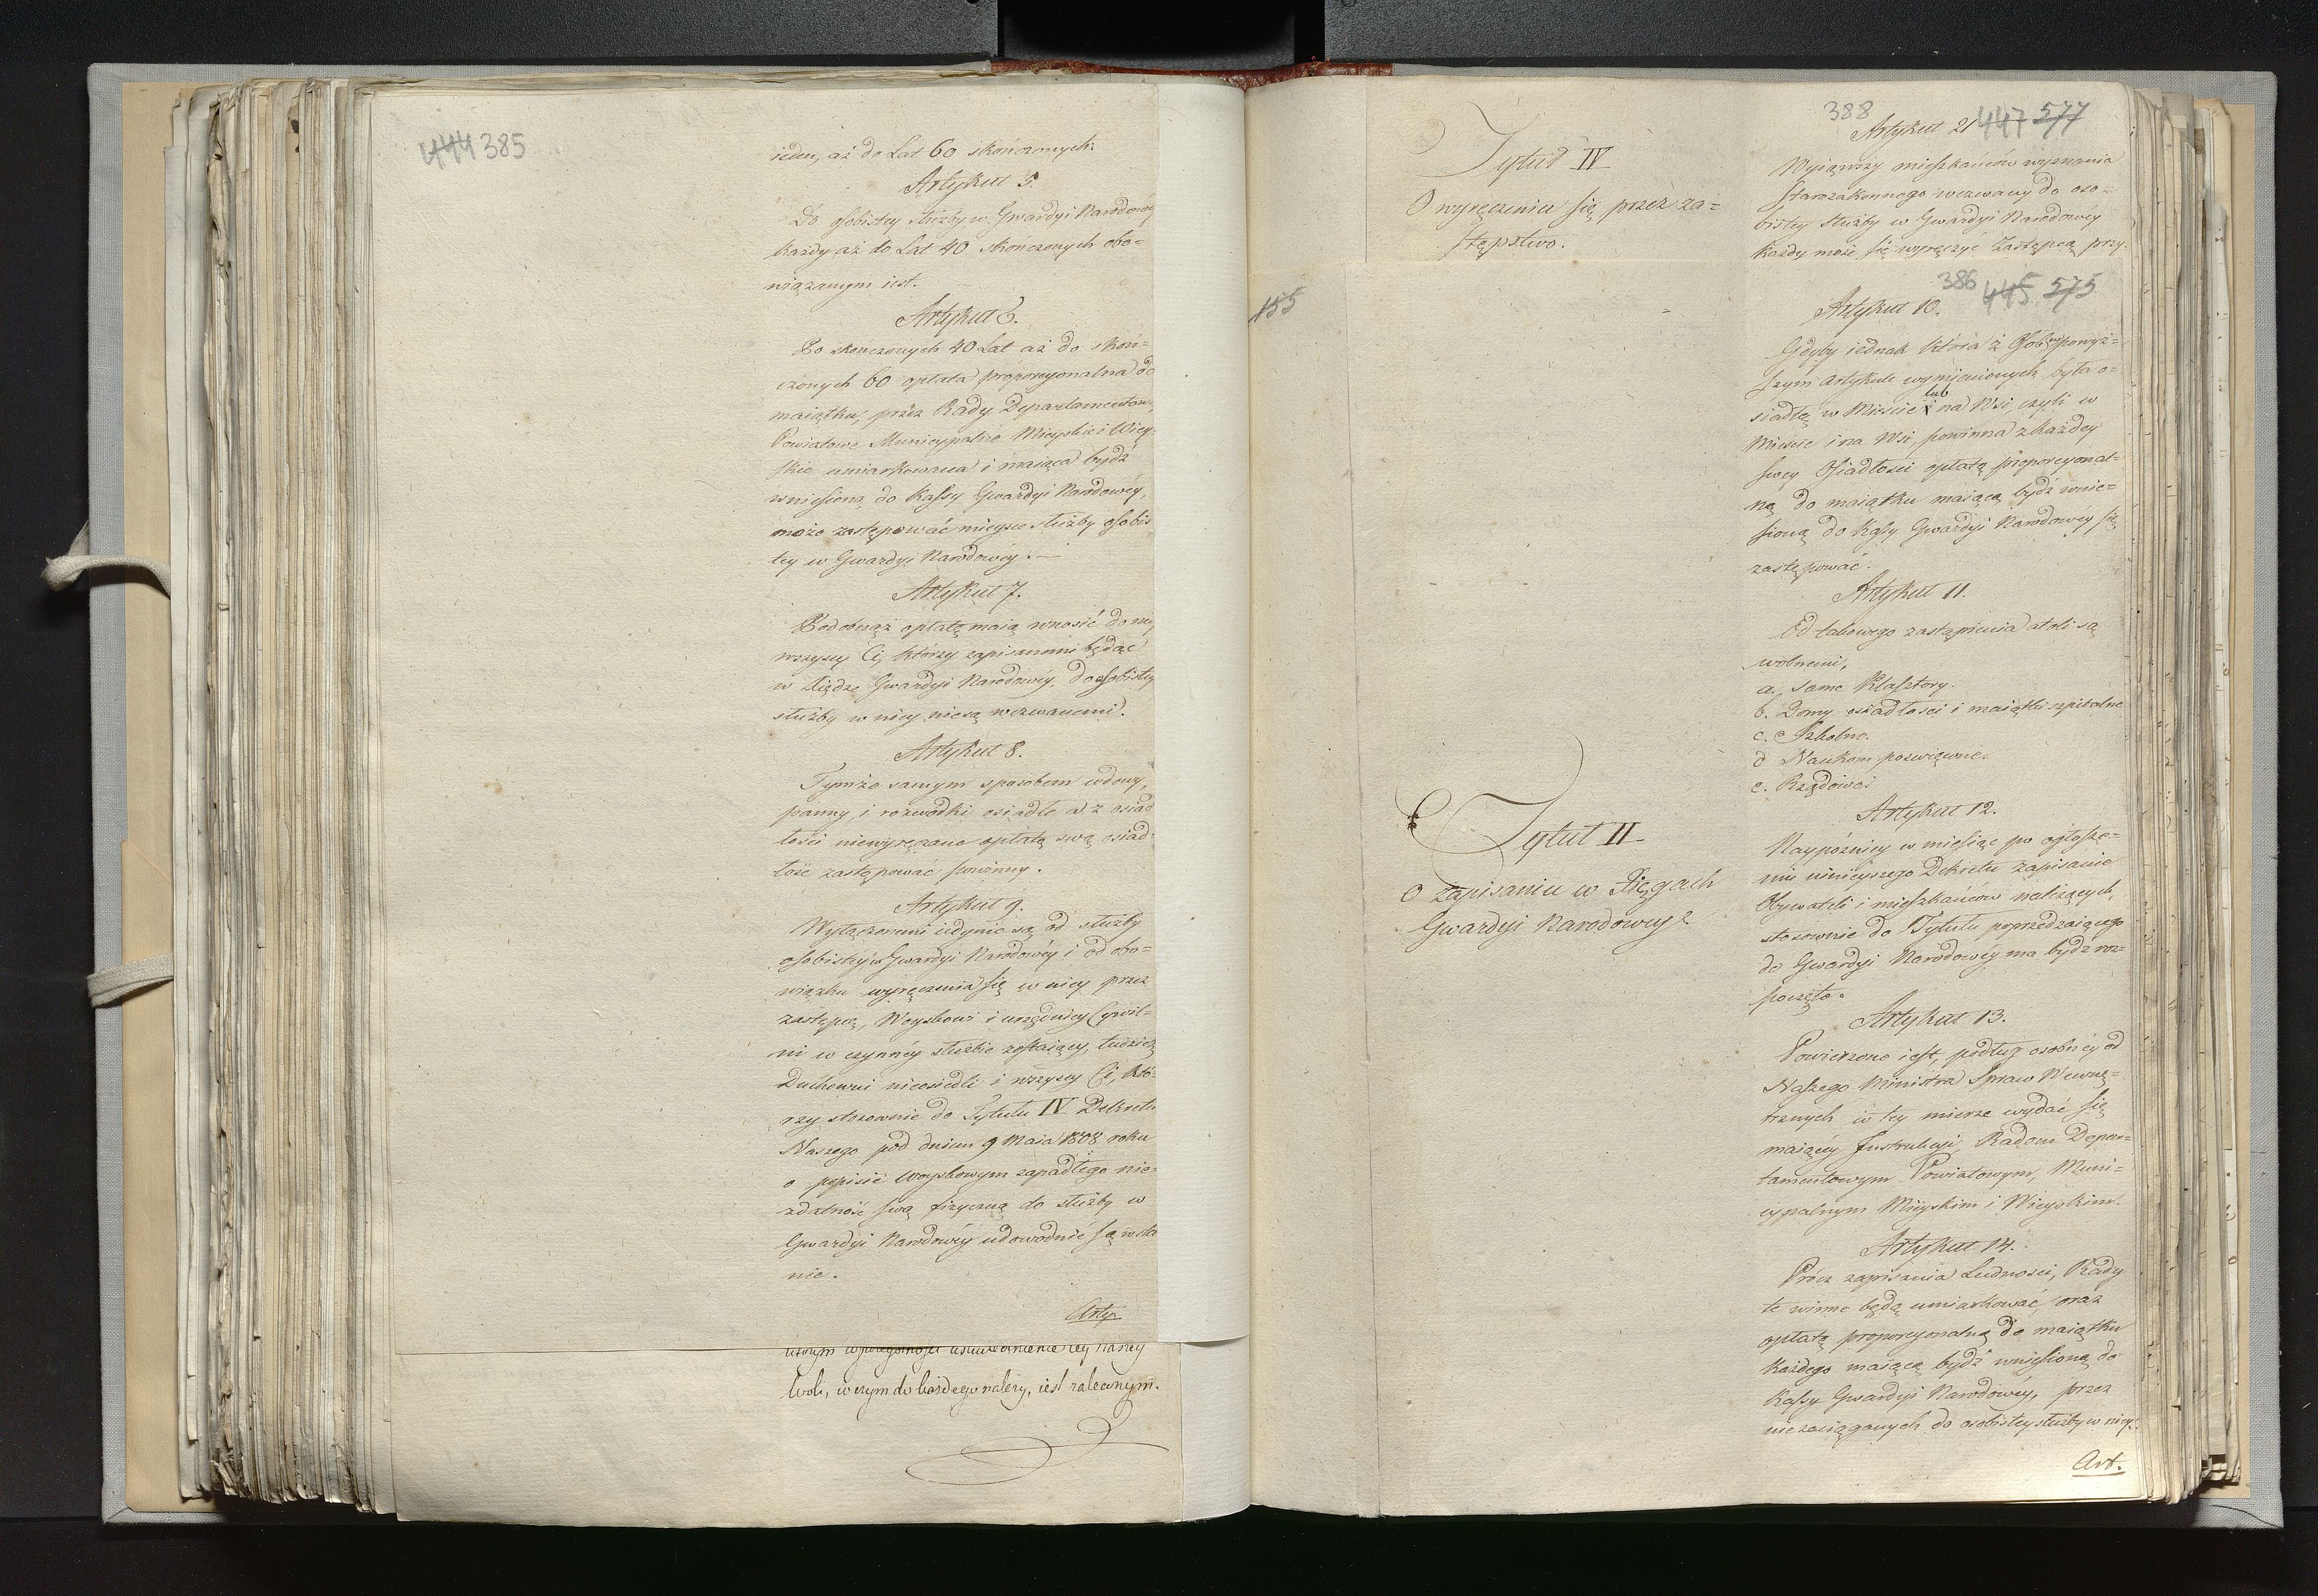 444 385
ieden, aż do Lat 60 skończonych.
Artykuł 5.
Do osobistey służby w Gwardyi Narodowéy
każdy aż do Lat 40 skończonych obo=
wiązanym iest.
Artykuł 6.
Po skończonych 40 Lat aż do skoń=
czonych 60 opłata proporcyonalna do
maiątku, przez Rady Departamentow.
Powiatowe Municypalne Mieyskie i Wiey-
skie umiarkowana i maiąca bydź
wniesioną do Kassy Gwardyi Narodowéy,
może zastępować mieysce służby osobis
tey w Gwardyi Narodowéy. —
Artykuł 7.
Podobnąż opłatę maią wnosić do niey
wszyscy Ci, którzy zapisanemi będąc
w Xiędze Gwardyi Narodowéy, do osobistey
służby w niey niesą wezwanemi.
Artykuł 8.
Tymże samym sposobem wdowy,
panny i rozwodki osiadłe a z osiad
łości niewyręczane opłatą swą osiad=
łość zastępować powinny.
Artykuł 9.
Wyłączonemi iedynie są od służby
osobistey w Gwardyi Narodowéy i od obo=
wiązku wyręczenia się w niey przez
zastępcę, Woyskowi i urzędnicy Cywil=
ni w czynnéy służbie zostaiący, tudzież
Duchowni nieosiedli i wszyscy Ci, któ=
rzy stosownie do Tytułu IV Dekretu
Naszego pod dniem 9 Maia 1808 roku
o popisie woyskowym zapadłego nie=
zdatność swą fizyczną do służby w
Gwardyi Narodowéy udowodnić są w sta
nie.
Arty.
którym w szczególności uskutecznienie tey naszey
woli, w czym do każdego należy, iest zaleconym.
388
447 577
Tytuł IV
O wyręczeniu się przez za=
stępstwo.
Artykuł 21
Wyiąwszy mieszkańców wyznania
Starozakonnego wezwany do oso=
bistey służby w Gwardyi Narodowéy
każdy może się wyręczyć Zastępcą przy=
155
386 445 575
Artykuł 10.
Gdyby iednak która z Osób w powyż=
szym Artykule wymienionych była o=
siadłą w Mieście i lub na Wsi, czyli w
Mieście i na Wsi, powinna z każdey
swey Osiadłości opłatą proporcyonal=
ną do maiątku maiącą bydź wnie=
sioną do Kassy Gwardyi Narodowéy się
zastępować.
Artykuł 11.
Od takowego zastąpienia atoli są
wolnemi,
a. same Klasztory.
b. Domy osiadłości i maiątki szpitalne
c. Szkolne.
d Naukom poswięcone.
e. Rządowe.
Tytuł II
O zapisaniu w Xięgach
Gwardyi Narodowey
Artykuł 12.
Naypóźniey w miesiąc po ogłosze=
niu ninieyszego Dekretu zapisanie
Obywateli i mieszkańców należących,
stosownie do Tytułu poprzedzaiącego
do Gwardyi Narodowéy ma bydź roz=
poczęte.
Artykuł 13.
Powierzone iest, podług osobnéy od
Naszego Ministra Spraw Wewnę=
trznych w tey mierze wydać się
maiącéy Instrukcyi, Radom Depar=
tamentowym Powiatowym, Muni=
cypalnym Mieyskim i Wieyskim.
Artykuł 14.
Prócz zapisania Ludności, Rady
te winne będą umiarkować, oraz
opłatę proporcyonalną do maiątku
każdego maiącą bydź wniesioną do
Kassy Gwardyi Narodowéy, przez
niezaciąganych do osobistey służby w niey.
Art.